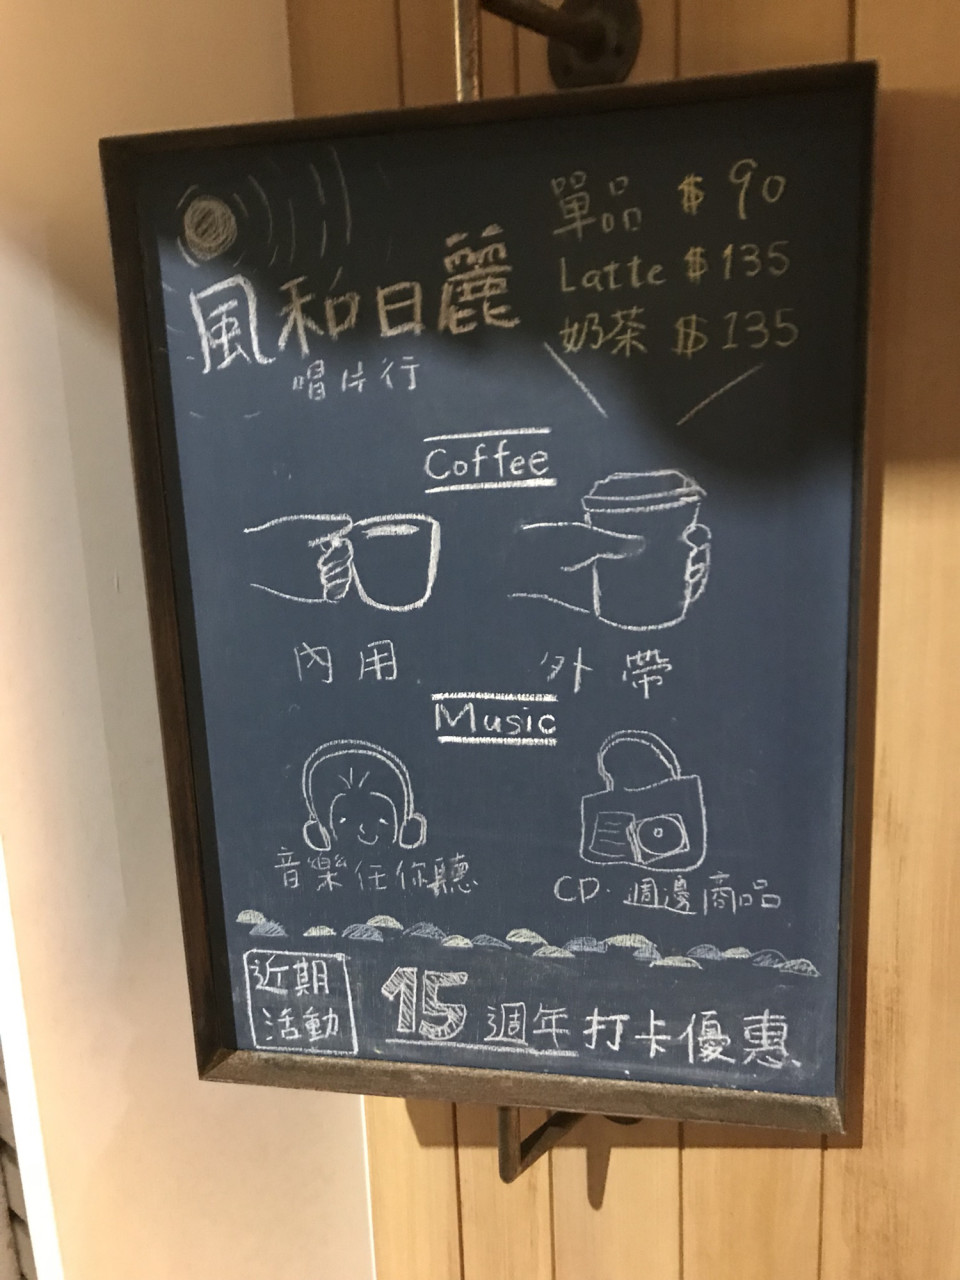 單品 $90
Latte $135
奶茶 $135
風和日麗
唱片行
Coffee
內用
外帶
Music
音樂任你聽
CD·週邊商品
近期
活動
15週年打卡優惠